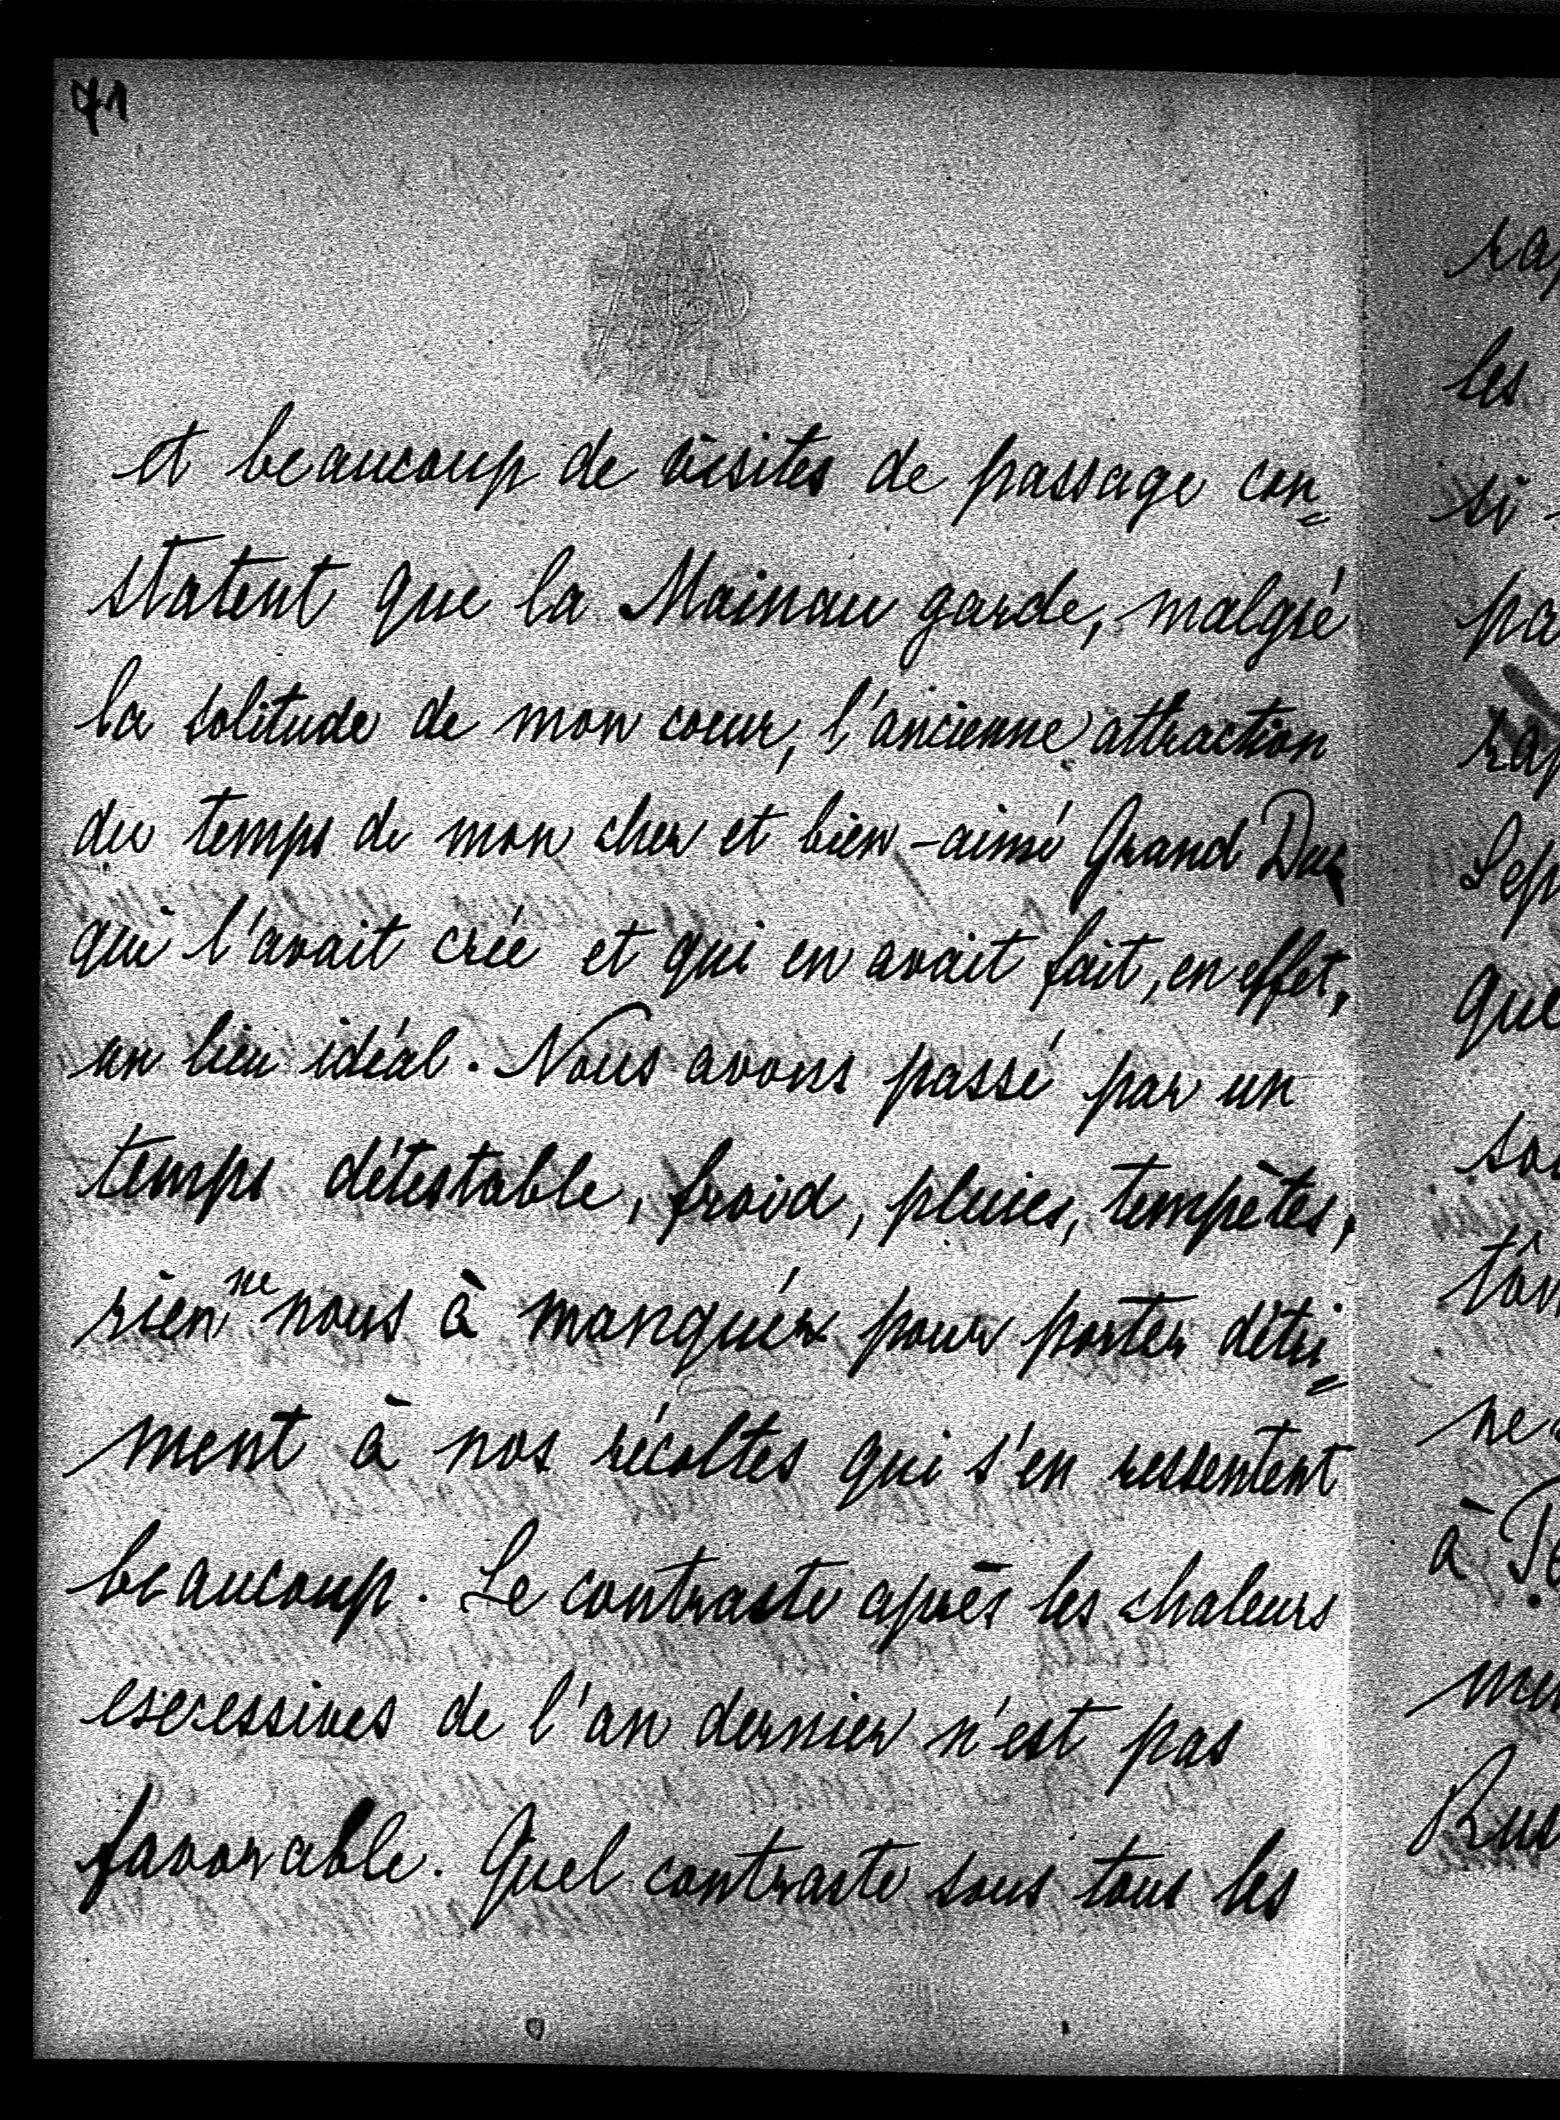 71
et beaucoup de visites de passage con=
statent que la Mainau garde, malgré
la solitude de mon coeur, l'ancienne attraction
du temps de mon cher et bien-aimé Grand Duc
qui l'avait créé et qui en avait fait, en effet,
un lieu idéal. Nous avons passé par un
temps détestable, froid, pluies, tempètes,
rien ne nous à manquér pour porter détri=
ment à nos récoltes qui s'en ressentent
beaucoup. Le contraste après les chaleurs
excessives de l'an dernier n'est pas
favorable. Quel contraste sous tous les
les
si